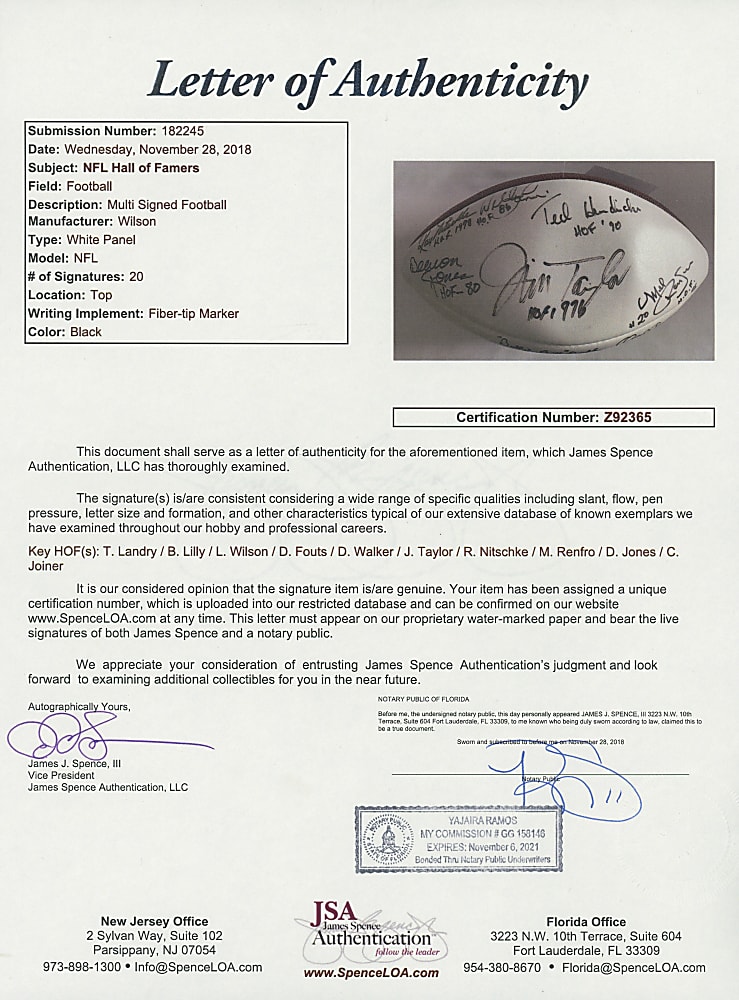 Letter of Authenticity
Submission Number: 182245
Date: Wednesday, November 28, 2018
Subject: NFL Hall of Famers
Field: Football
Description: Multi Signed Football
Manufacturer: Wilson
Type: White Panel
Model: NFL
# of Signatures: 20
Location: Top
Writing Implement: Fiber-tip Marker
Color: Black
Ted Hendricks
HOF '90
Deacon
Jones
HOF-80
Jim Taylor
HOF 1976
Certification Number: Z92365
This document shall serve as a letter of authenticity for the aforementioned item, which James Spence
Authentication, LLC has thoroughly examined.
The signature(s) is/are consistent considering a wide range of specific qualities including slant, flow, pen
pressure, letter size and formation, and other characteristics typical of our extensive database of known exemplars we
have examined throughout our hobby and professional careers.
Key HOF(s): T. Landry / B. Lilly / L. Wilson / D. Fouts / D. Walker / J. Taylor / R. Nitschke / M. Renfro / D. Jones / C.
Joiner
It is our considered opinion that the signature item is/are genuine. Your item has been assigned a unique
certification number, which is uploaded into our restricted database and can be confirmed on our website
www.SpenceLOA.com at any time. This letter must appear on our proprietary water-marked paper and bear the live
signatures of both James Spence and a notary public.
We appreciate your consideration of entrusting James Spence Authentication's judgment and look
forward to examining additional collectibles for you in the near future.
Autographically Yours,
James J. Spence, III
Vice President
James Spence Authentication, LLC
NOTARY PUBLIC OF FLORIDA
Before me, the undersigned notary public, this day personally appeared JAMES J. SPENCE, III 3223 N.W. 10th
Terrace, Suite 604 Fort Lauderdale, FL 33309, to me known who being duly sworn according to law, claimed this to
be a true document.
Sworn and subscribed to before me on November 28, 2018
Notary Public
YAJAIRA RAMOS
MY COMMISSION # GG 158146
EXPIRES: November 6, 2021
Bonded Thru Notary Public Underwriters
New Jersey Office
2 Sylvan Way, Suite 102
Parsippany, NJ 07054
973-898-1300 • Info@SpenceLOA.com
JSA
James Spence
Authentication
follow the leader
www.SpenceLOA.com
Florida Office
3223 N.W. 10th Terrace, Suite 604
Fort Lauderdale, FL 33309
954-380-8670 • Florida@SpenceLOA.com